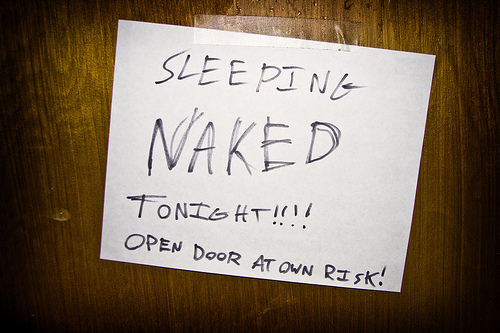 SLEEPING
NAKED
TONIGHT!!!!
OPEN DOOR AT OWN RISK!